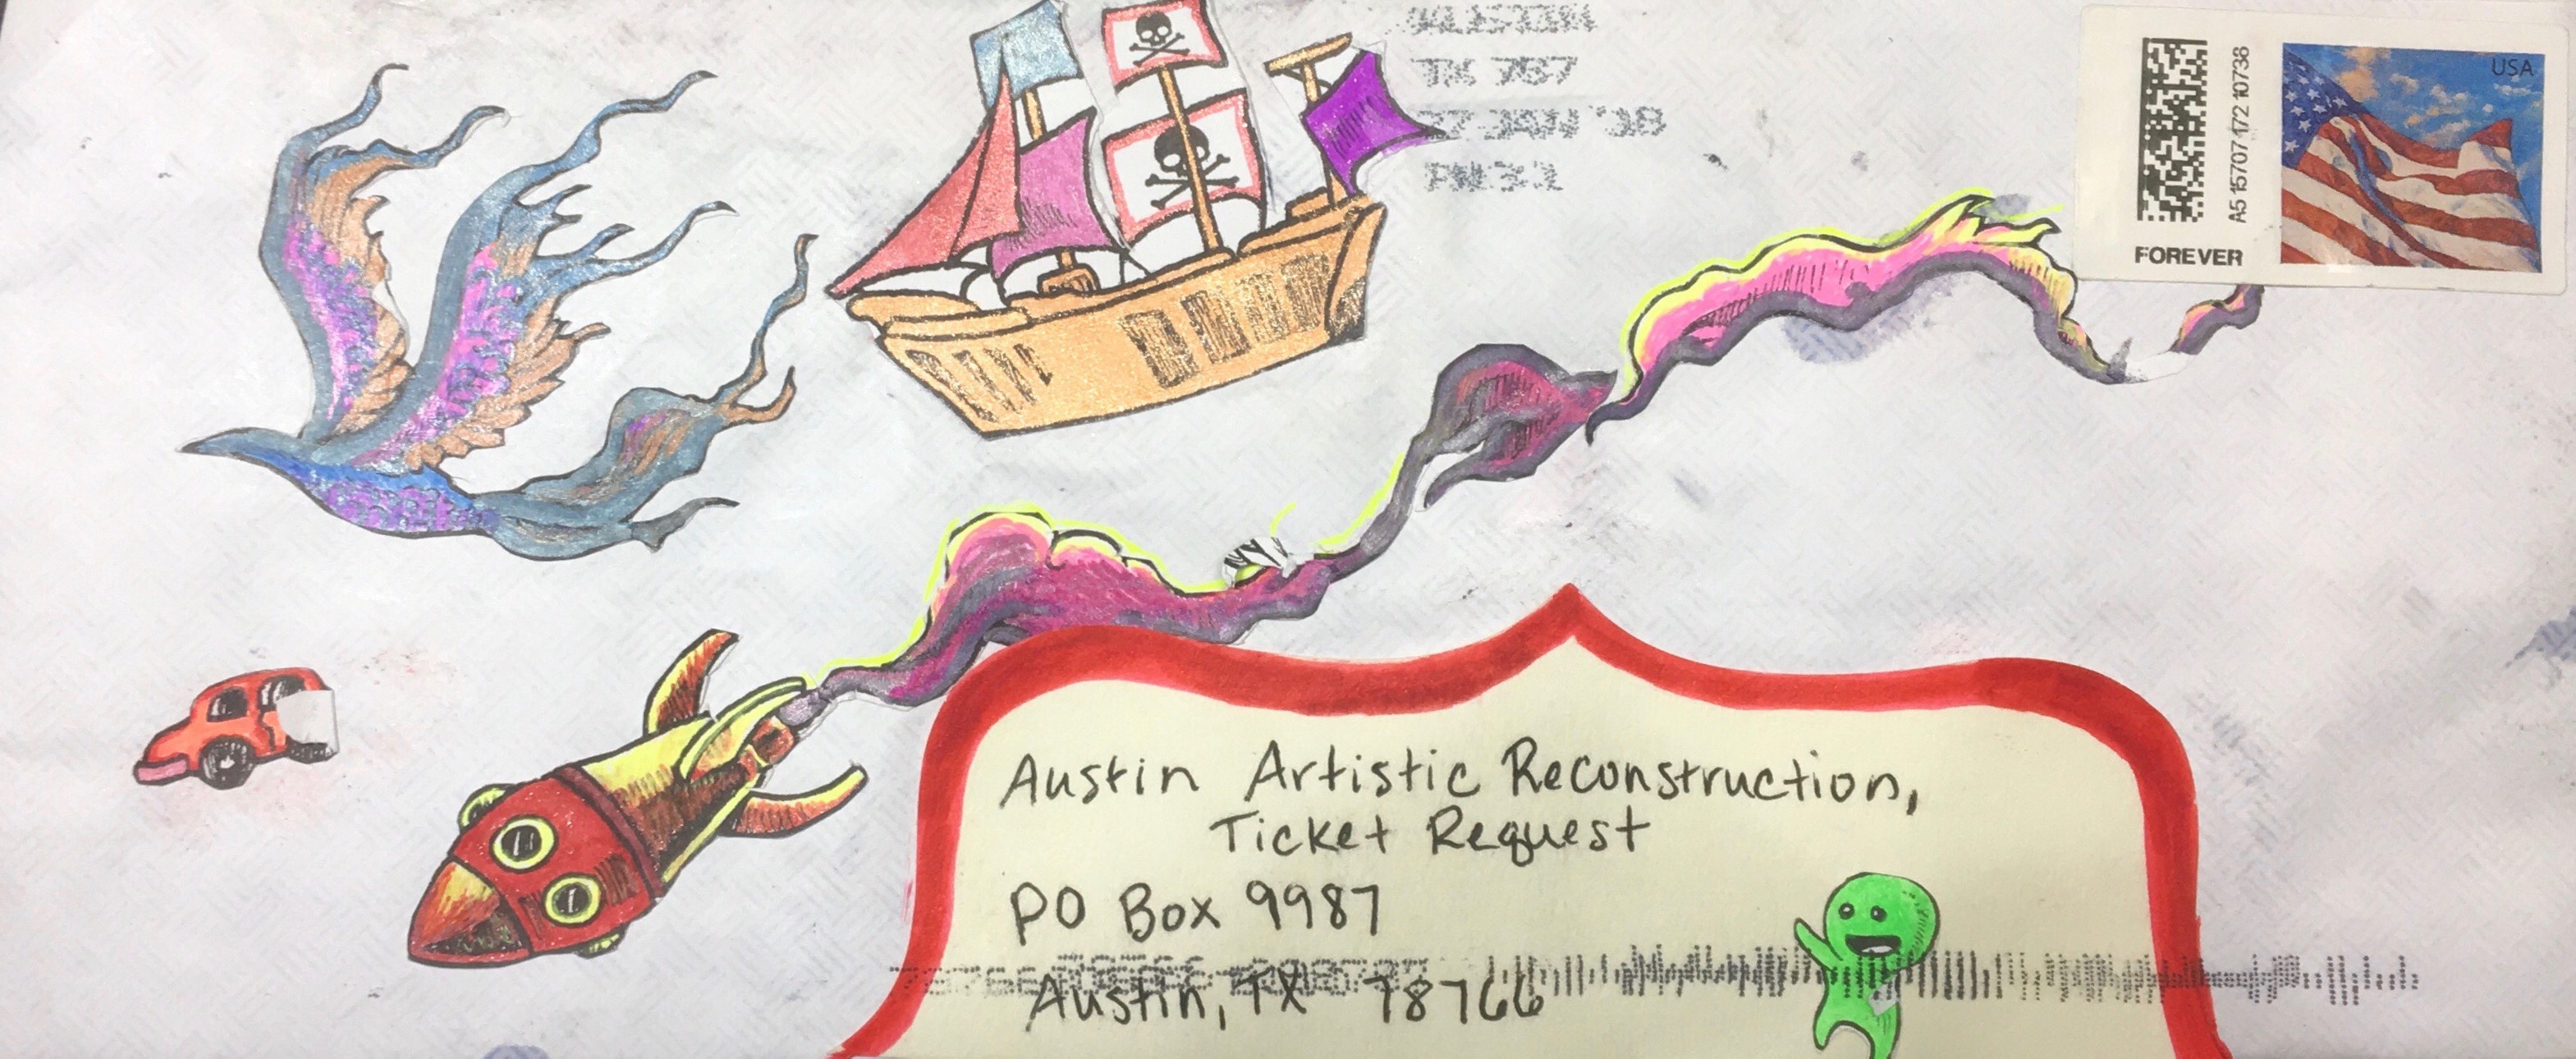 TX 787
27 JAN '18
USA
A5 15707 172 10738
FOREVER
Austin Artistic Reconstruction,
Ticket Request
PO Box 9987
Austin, TX 78766